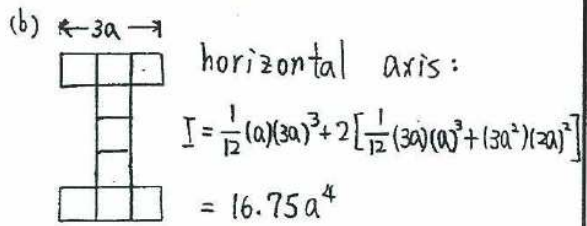 (b) ←3a→
horizontal axis:
I = 1/12 (a)(3a)³ + 2[1/12 (3a)(a)³ + (3a²)(2a)²]
= 16.75a⁴